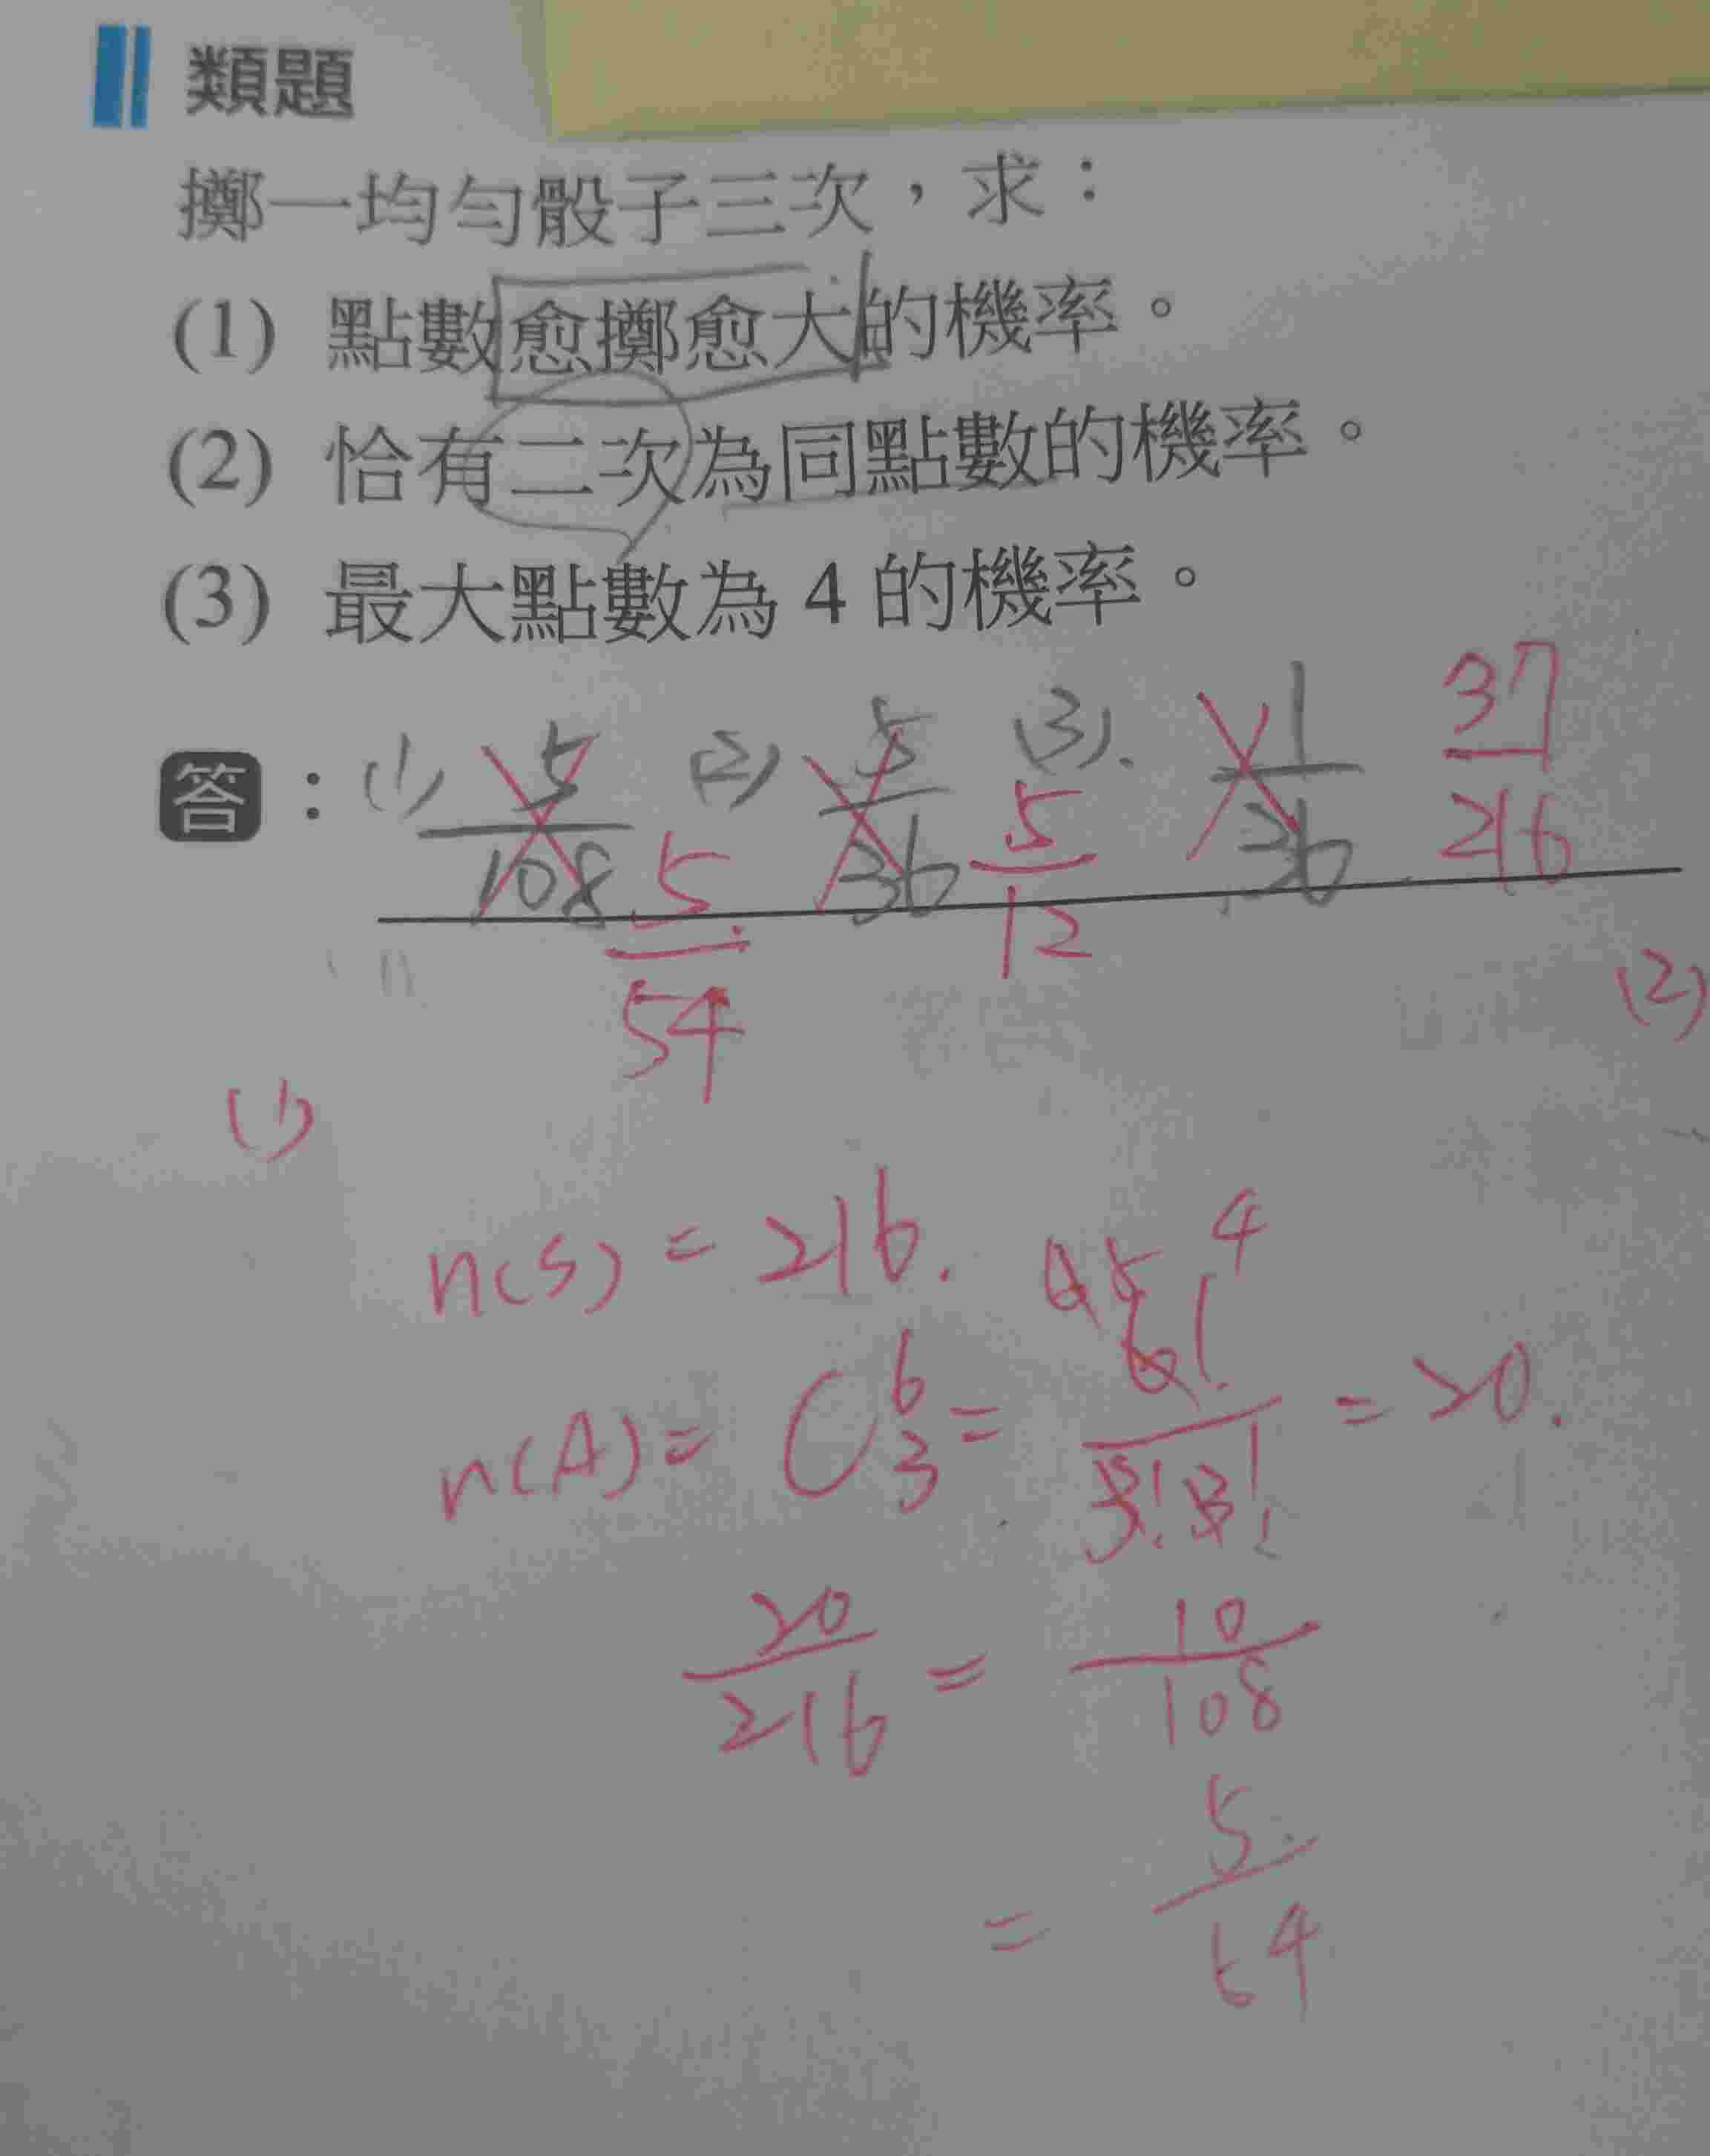 類題
擲一均勻骰子三次，求：
(1) 點數愈擲愈大的機率。
(2) 恰有二次為同點數的機率。
(3) 最大點數為 4 的機率。
答：(1) 5/108 5/54 (2) 5/36 5/12 (3). 1/36 37/216
(2)
(1)
n(S) = 216.
n(A) = C 6 3 = 6!/3!3! = 20.
20/216 = 10/108
= 5/54